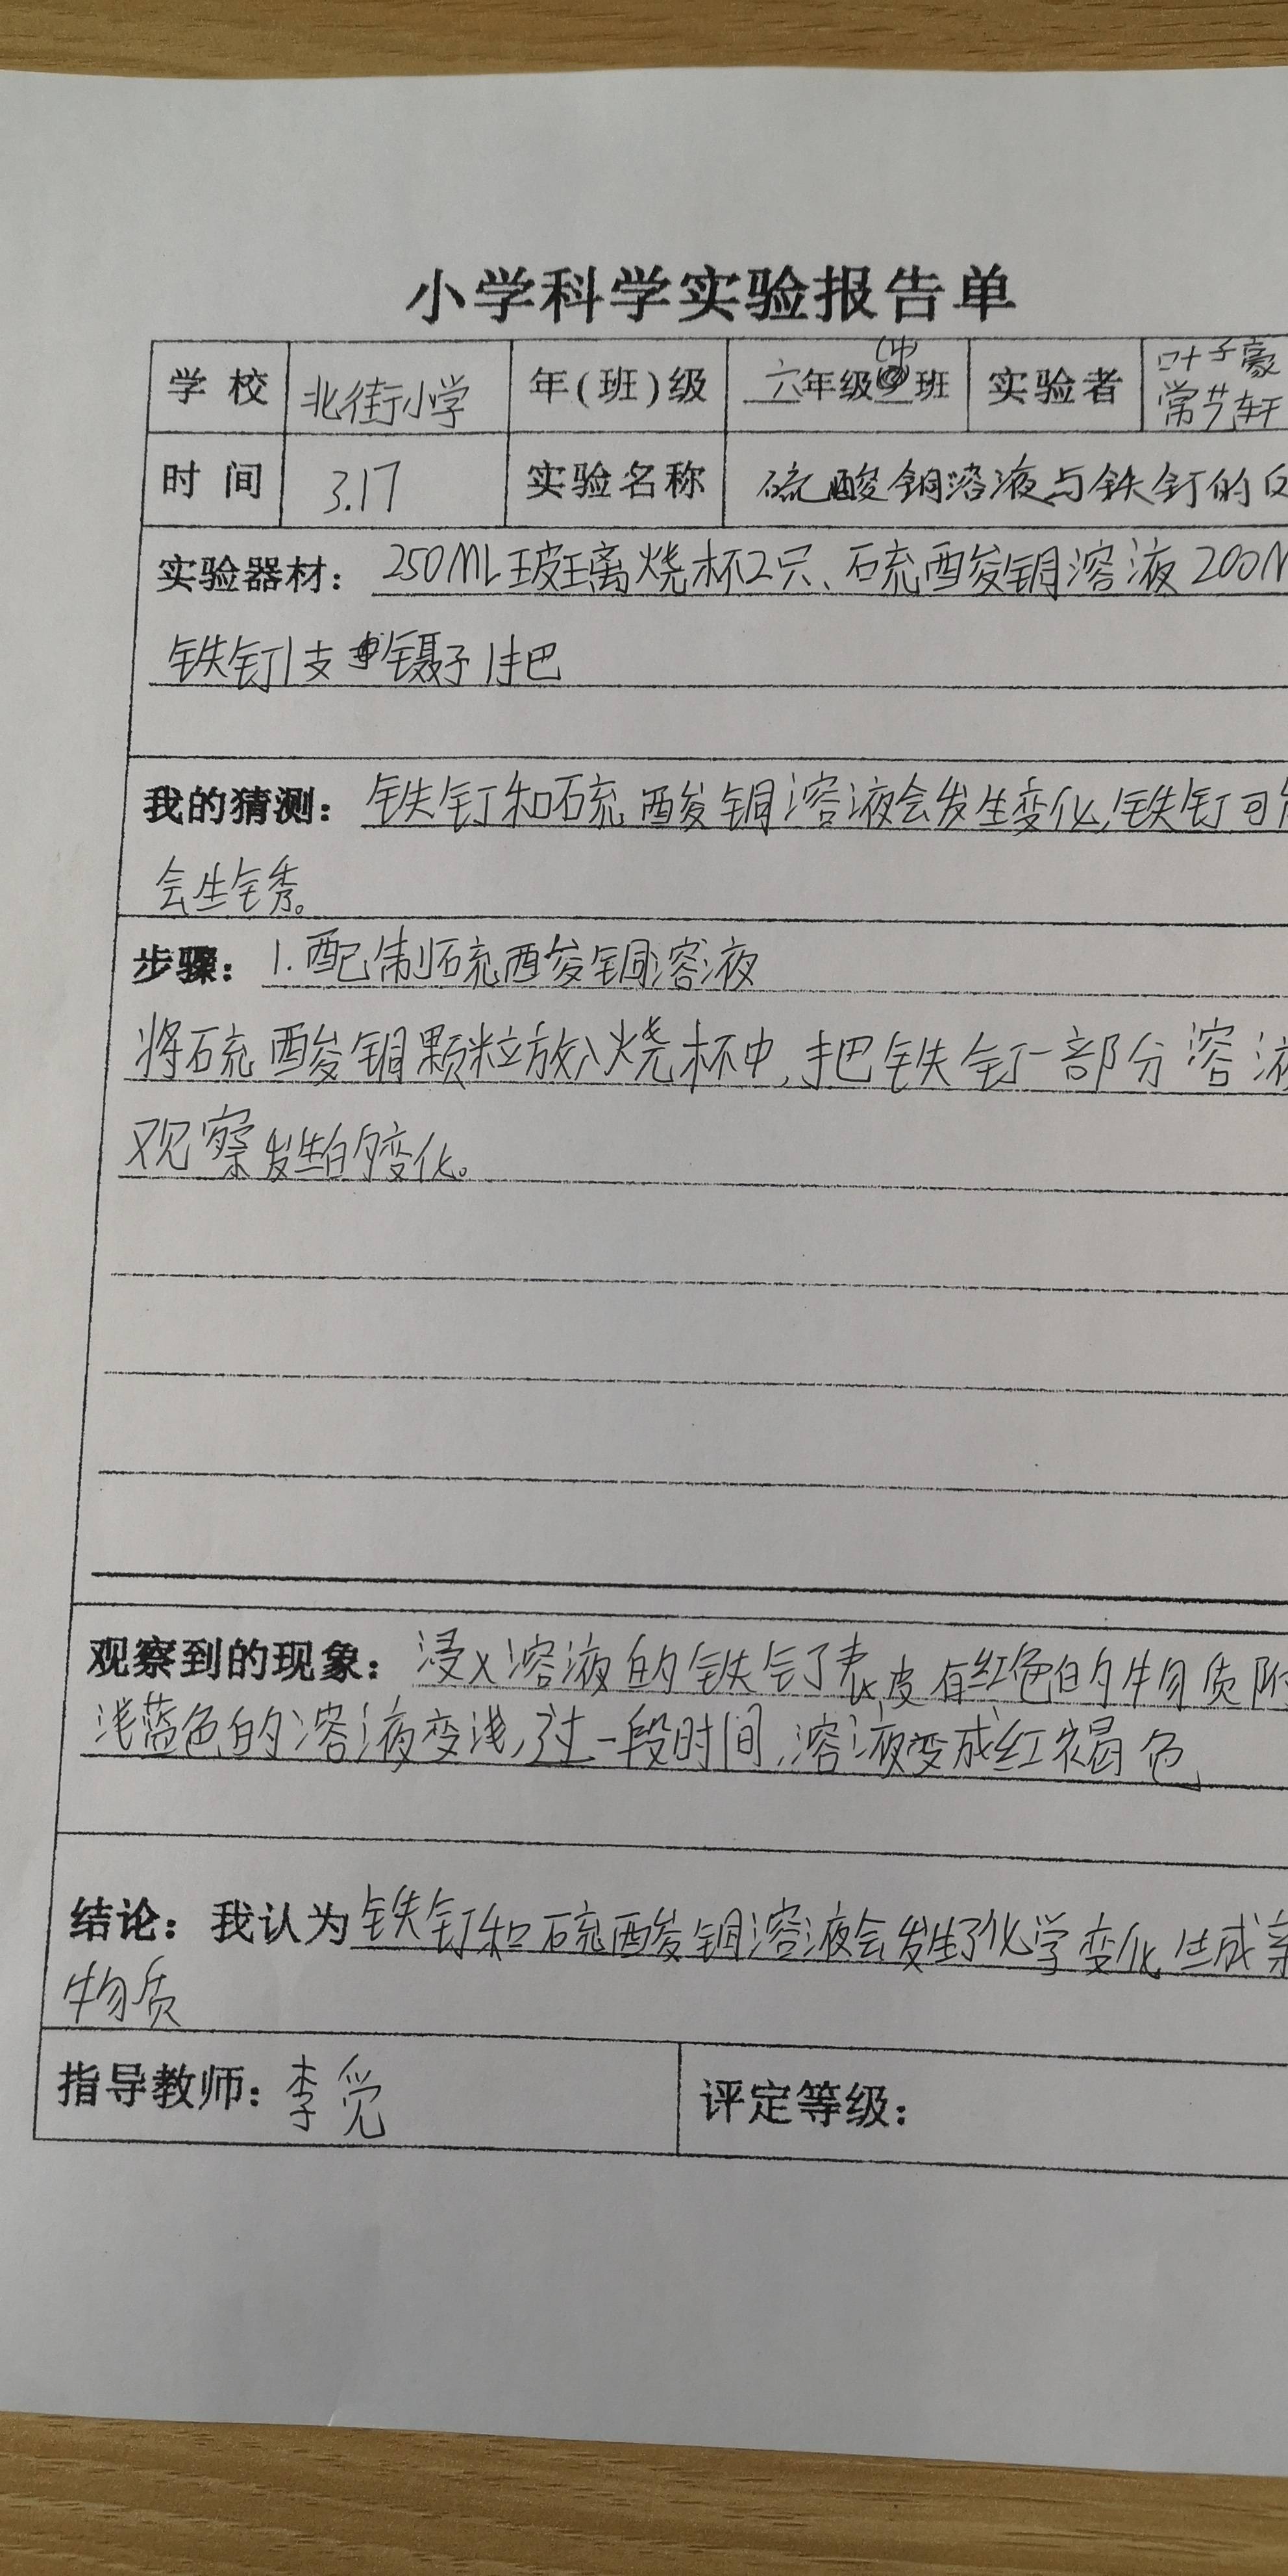 小学科学实验报告单
学校 北街小学 年(班)级 六年级(中)班 实验者 叶子豪
常艺轩
时间 3.17 实验名称 硫酸铜溶液与铁钉的
实验器材: 250ML玻璃烧杯2只、硫酸铜溶液200
铁钉1支 镊子1把
我的猜测: 铁钉和硫酸铜溶液会发生变化,铁钉可
会生锈。
步骤: 1.配制硫酸铜溶液
将硫酸铜颗粒放入烧杯中,把铁钉一部分溶
观察发生的变化。
观察到的现象: 浸入溶液的铁钉表皮有红色的物质附
浅蓝色的溶液变浅,过一段时间,溶液变成红褐色
结论: 我认为铁钉和硫酸铜溶液会发生了化学变化 生成
物质
指导教师: 李觉 评定等级: